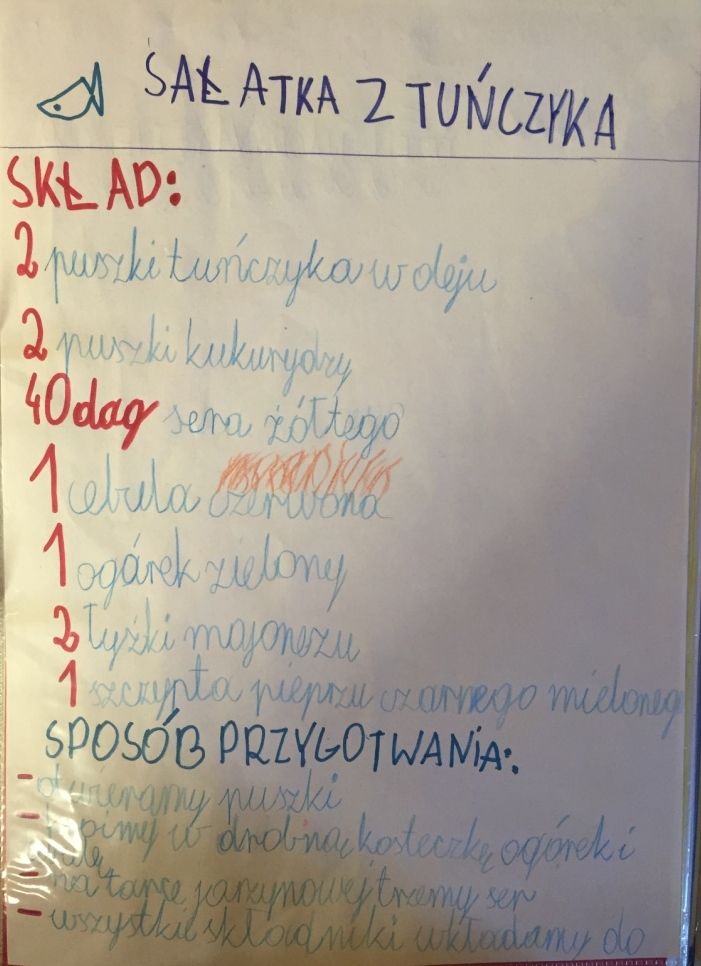 SAŁATKA Z TUŃCZYKA
SKŁAD:
2 puszki tuńczyka w oleju
2 puszki kukurydzy
40 dag sera żółtego
1 cebula czerwona
1 ogórek zielony
2 łyżki majonezu
1 szczypta pieprzu czarnego mieloneg
SPOSÓB PRZYGOTWANIA:
- otwieramy puszki
- w drobną kosteczkę ogórek i
- na tarce jarzynowej trzemy ser
- wszystkie składniki wkładamy do